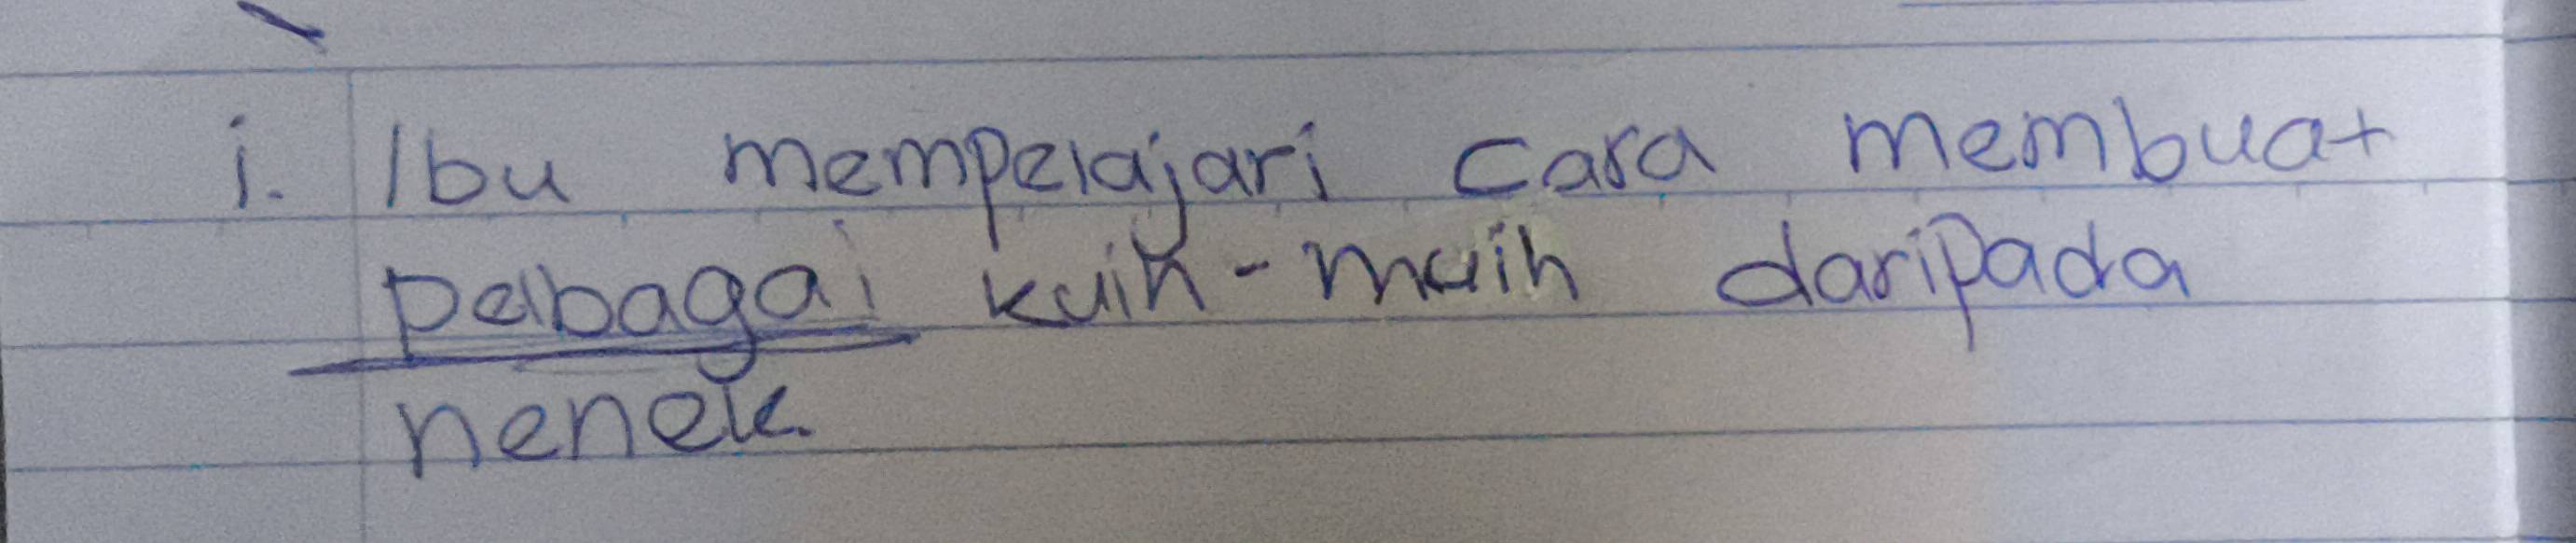 i. Ibu mempelajari cara membuat
pelbagai kuih-muih daripada
nenek.